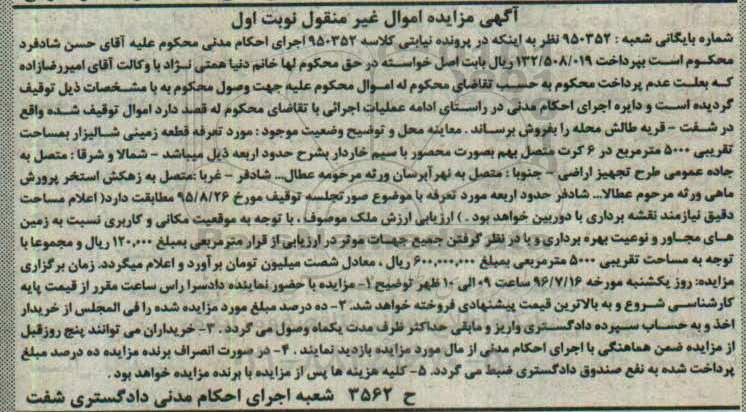 آگهی مزایده اموال غیر منقول نوبت اول
شماره بایگانی شعبه : ۹۵۰۳۵۲ نظر به اینکه در پرونده نیابتی کلاسه ۹۵۰۳۵۲ اجرای احکام مدنی محکوم علیه آقای حسن شادفرد
محکوم است بپرداخت ۱۳۲/۵۰۸/۰۱۹ ریال بابت اصل خواسته در حق محکوم لها خانم دنیا همتی نژاد با وکالت آقای امیررضازاده
که بعلت عدم پرداخت محکوم به حسب تقاضای محکوم له اموال محکوم علیه جهت وصول محکوم به با مشخصات ذیل توقیف
گردیده است و دایره اجرای احکام مدنی در راستای ادامه عملیات اجرائی با تقاضای محکوم له قصد دارد اموال توقیف شده واقع
در شفت - قریه طالش محله را بفروش برساند . معاینه محل و توضیح وضعیت موجود : مورد تعرفه قطعه زمینی شالیزار بمساحت
تقریبی ۵۰۰۰ مترمربع در ۶ کرت متصل بهم بصورت محصور با سیم خاردار بشرح حدود اربعه ذیل میباشد - شمالا و شرقا : متصل به
جاده عمومی طرح تجهیز اراضی - جنوبا : متصل به نهرآبرسان ورثه مرحومه عطال... شادفر - غربا :متصل به زهکش استخر پرورش
ماهی ورثه مرحوم عطالا... شادفر حدود اربعه مورد تعرفه با موضوع صورتجلسه توقیف مورخ ۹۵/۸/۲۶ مطابقت دارد( اعلام مساحت
دقیق نیازمند نقشه برداری با دوربین خواهد بود . ) ارزیابی ارزش ملک موصوف ، با توجه به موقعیت مکانی و کاربری نسبت به زمین
های مجاور و نوعیت بهره برداری و با در نظر گرفتن جمیع جهات موثر در ارزیابی از قرار مترمربعی بمبلغ ۱۲۰,۰۰۰ ریال و مجموعا با
توجه به مساحت تقریبی ۵۰۰۰ مترمربعی بمبلغ ۶۰۰,۰۰۰,۰۰۰ ریال ، معادل شصت میلیون تومان برآورد و اعلام میگردد. زمان برگزاری
مزایده: روز یکشنبه مورخه ۹۶/۷/۱۶ ساعت ۰۹ الی ۱۰ ظهر توضیح ۱- مزایده با حضور نماینده دادسرا راس ساعت مقرر از قیمت پایه
کارشناسی شروع و به بالاترین قیمت پیشنهادی فروخته خواهد شد. ۲- ده درصد مبلغ مورد مزایده شده را فی المجلس از خریدار
اخذ و به حساب سپرده دادگستری واریز و مابقی حداکثر ظرف مدت یکماه وصول می گردد . ۳- خریداران می توانند پنج روزقبل
از مزایده ضمن هماهنگی با اجرای احکام مدنی از مال مورد مزایده بازدید نمایند . ۴- در صورت انصراف برنده مزایده ده درصد مبلغ
پرداخت شده به نفع صندوق دادگستری ضبط می گردد. ۵- کلیه هزینه ها پس از مزایده با برنده مزایده خواهد بود .
ح ۳۵۶۲ شعبه اجرای احکام مدنی دادگستری شفت